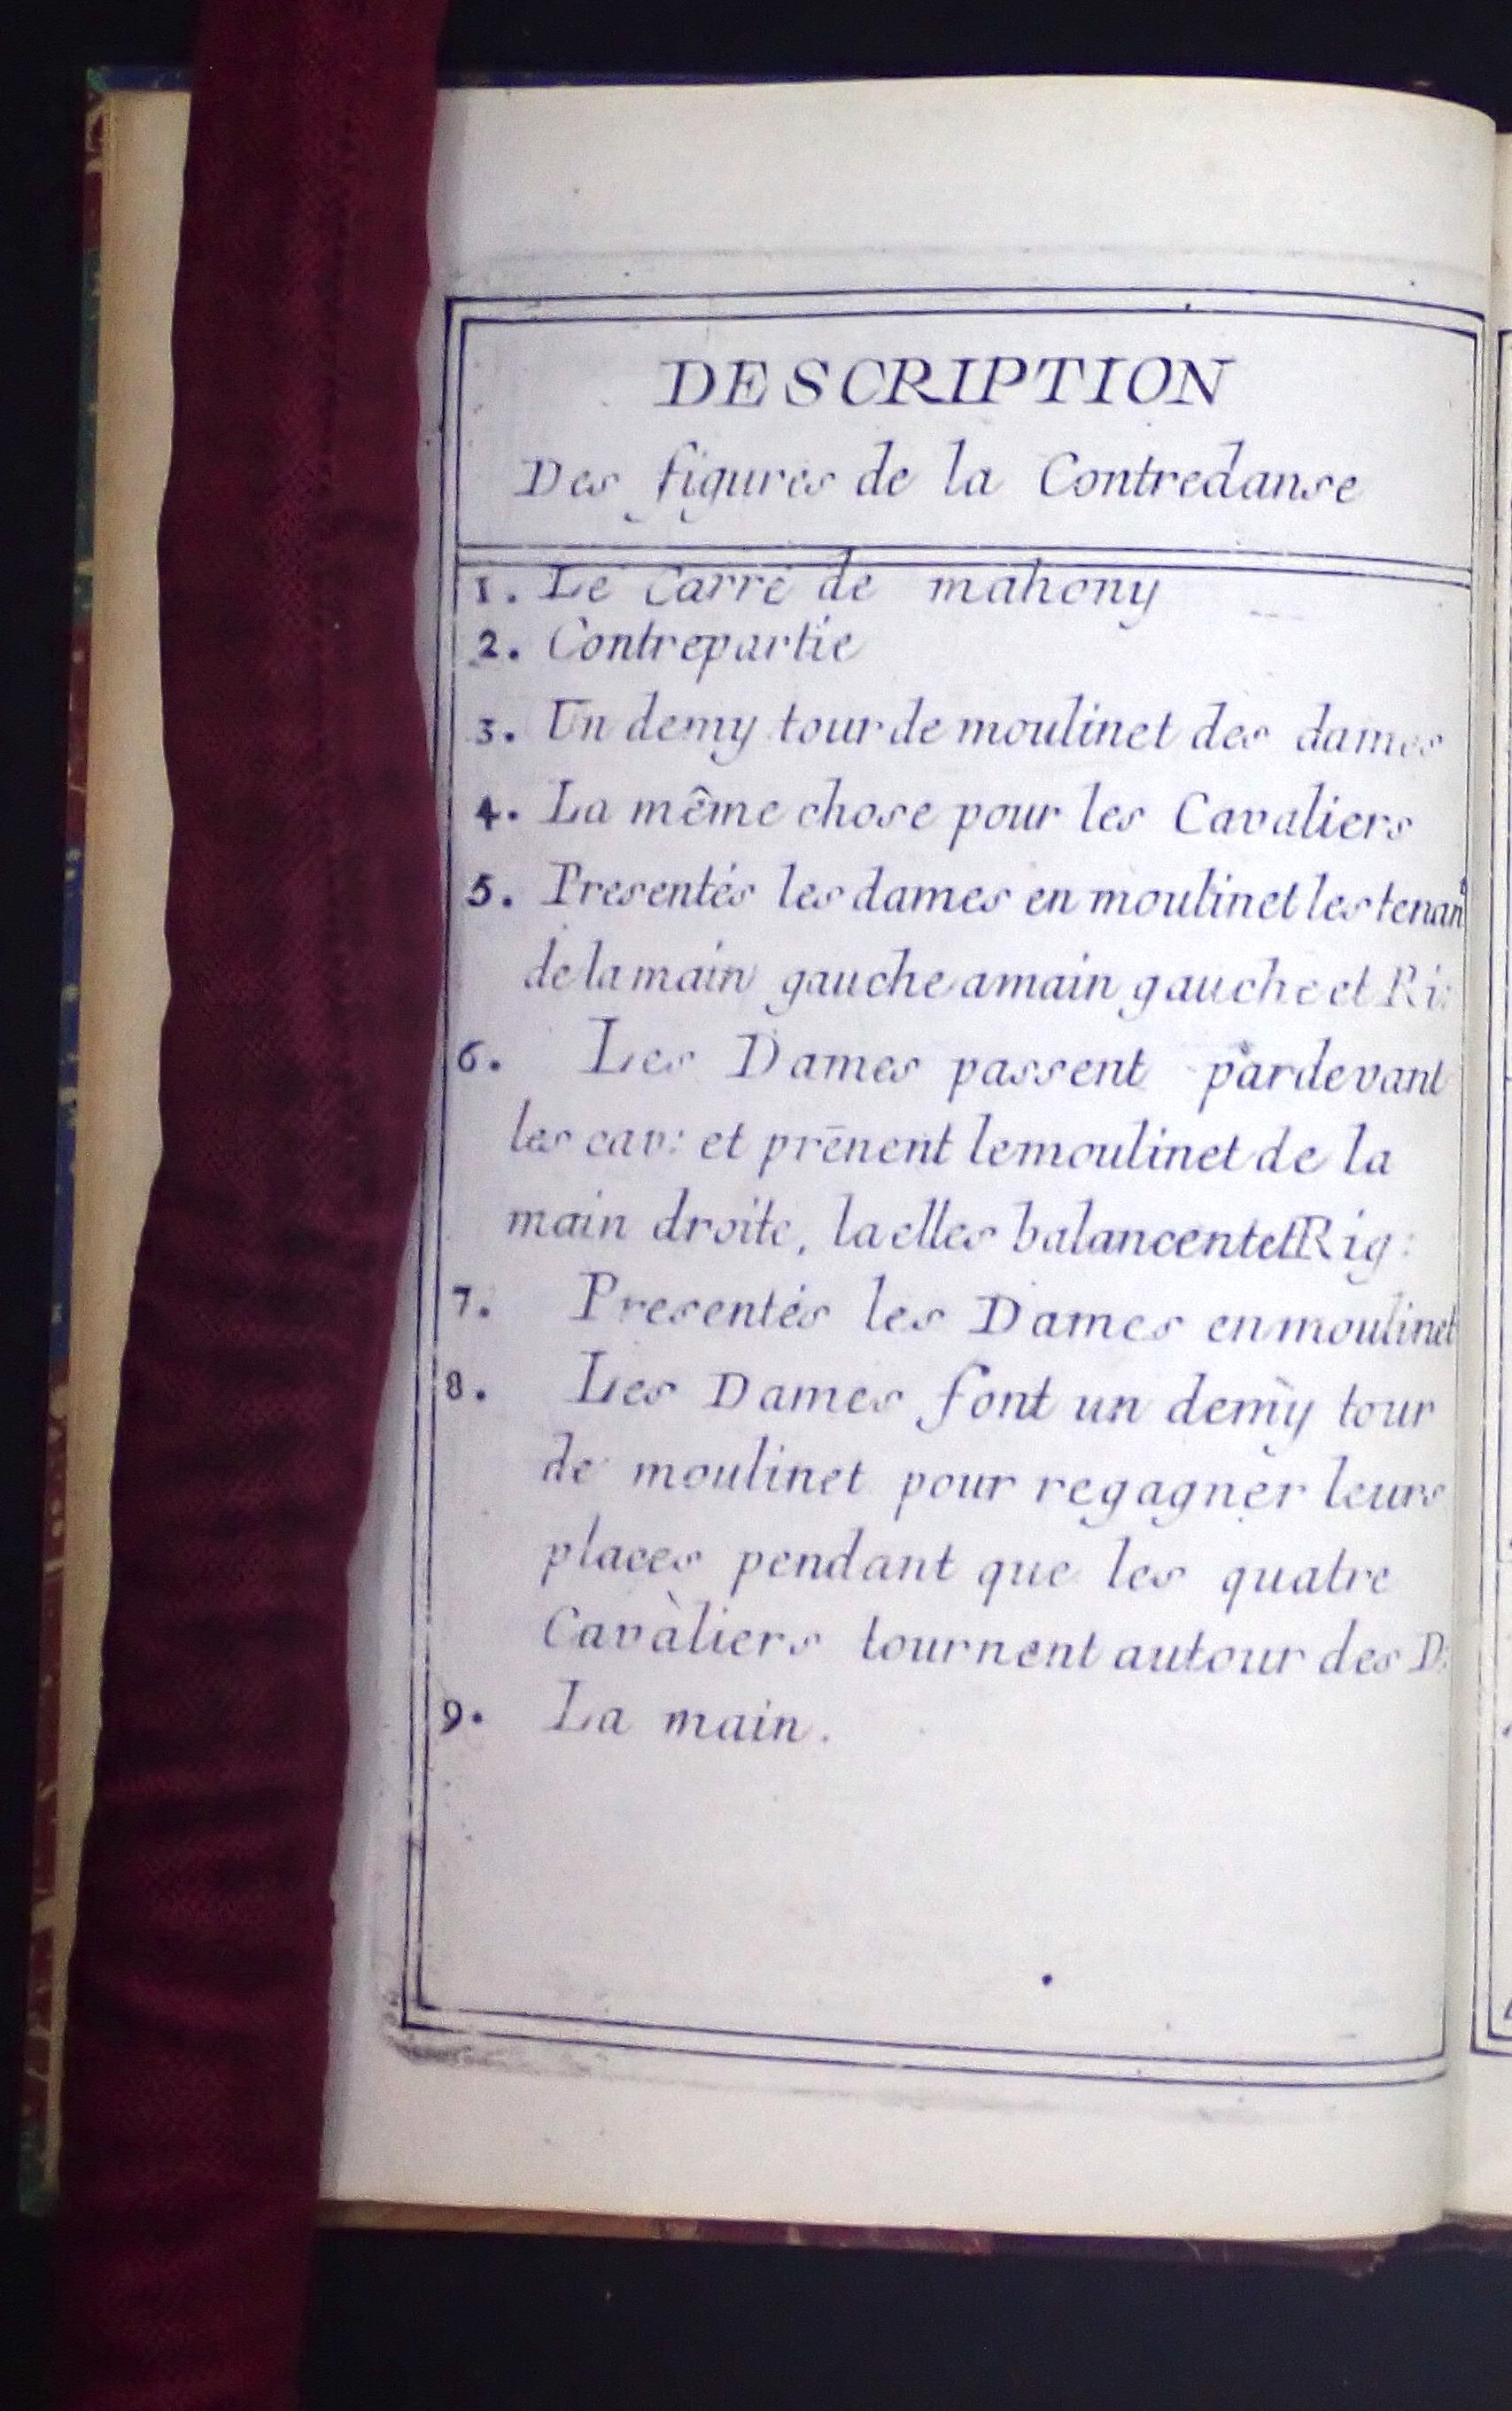 DESCRIPTION
Des figures de la Contredanse
1. Le Carré de mahony
2. Contrepartie
3. Un demy tour de moulinet des dames
4. La même chose pour les Cavaliers
5. Presentés les dames en moulinet les tenant
de la main gauche a main gauche et Ri:
6. Les Dames passent pardevant
les cav: et prēnent le moulinet de la
main droite, la elles balancent et Rig:
7. Presentés les Dames en moulinet
8. Les Dames font un demy tour
de moulinet pour regagner leurs
places pendant que les quatre
Cavàliers tournent autour des D:
9. La main.